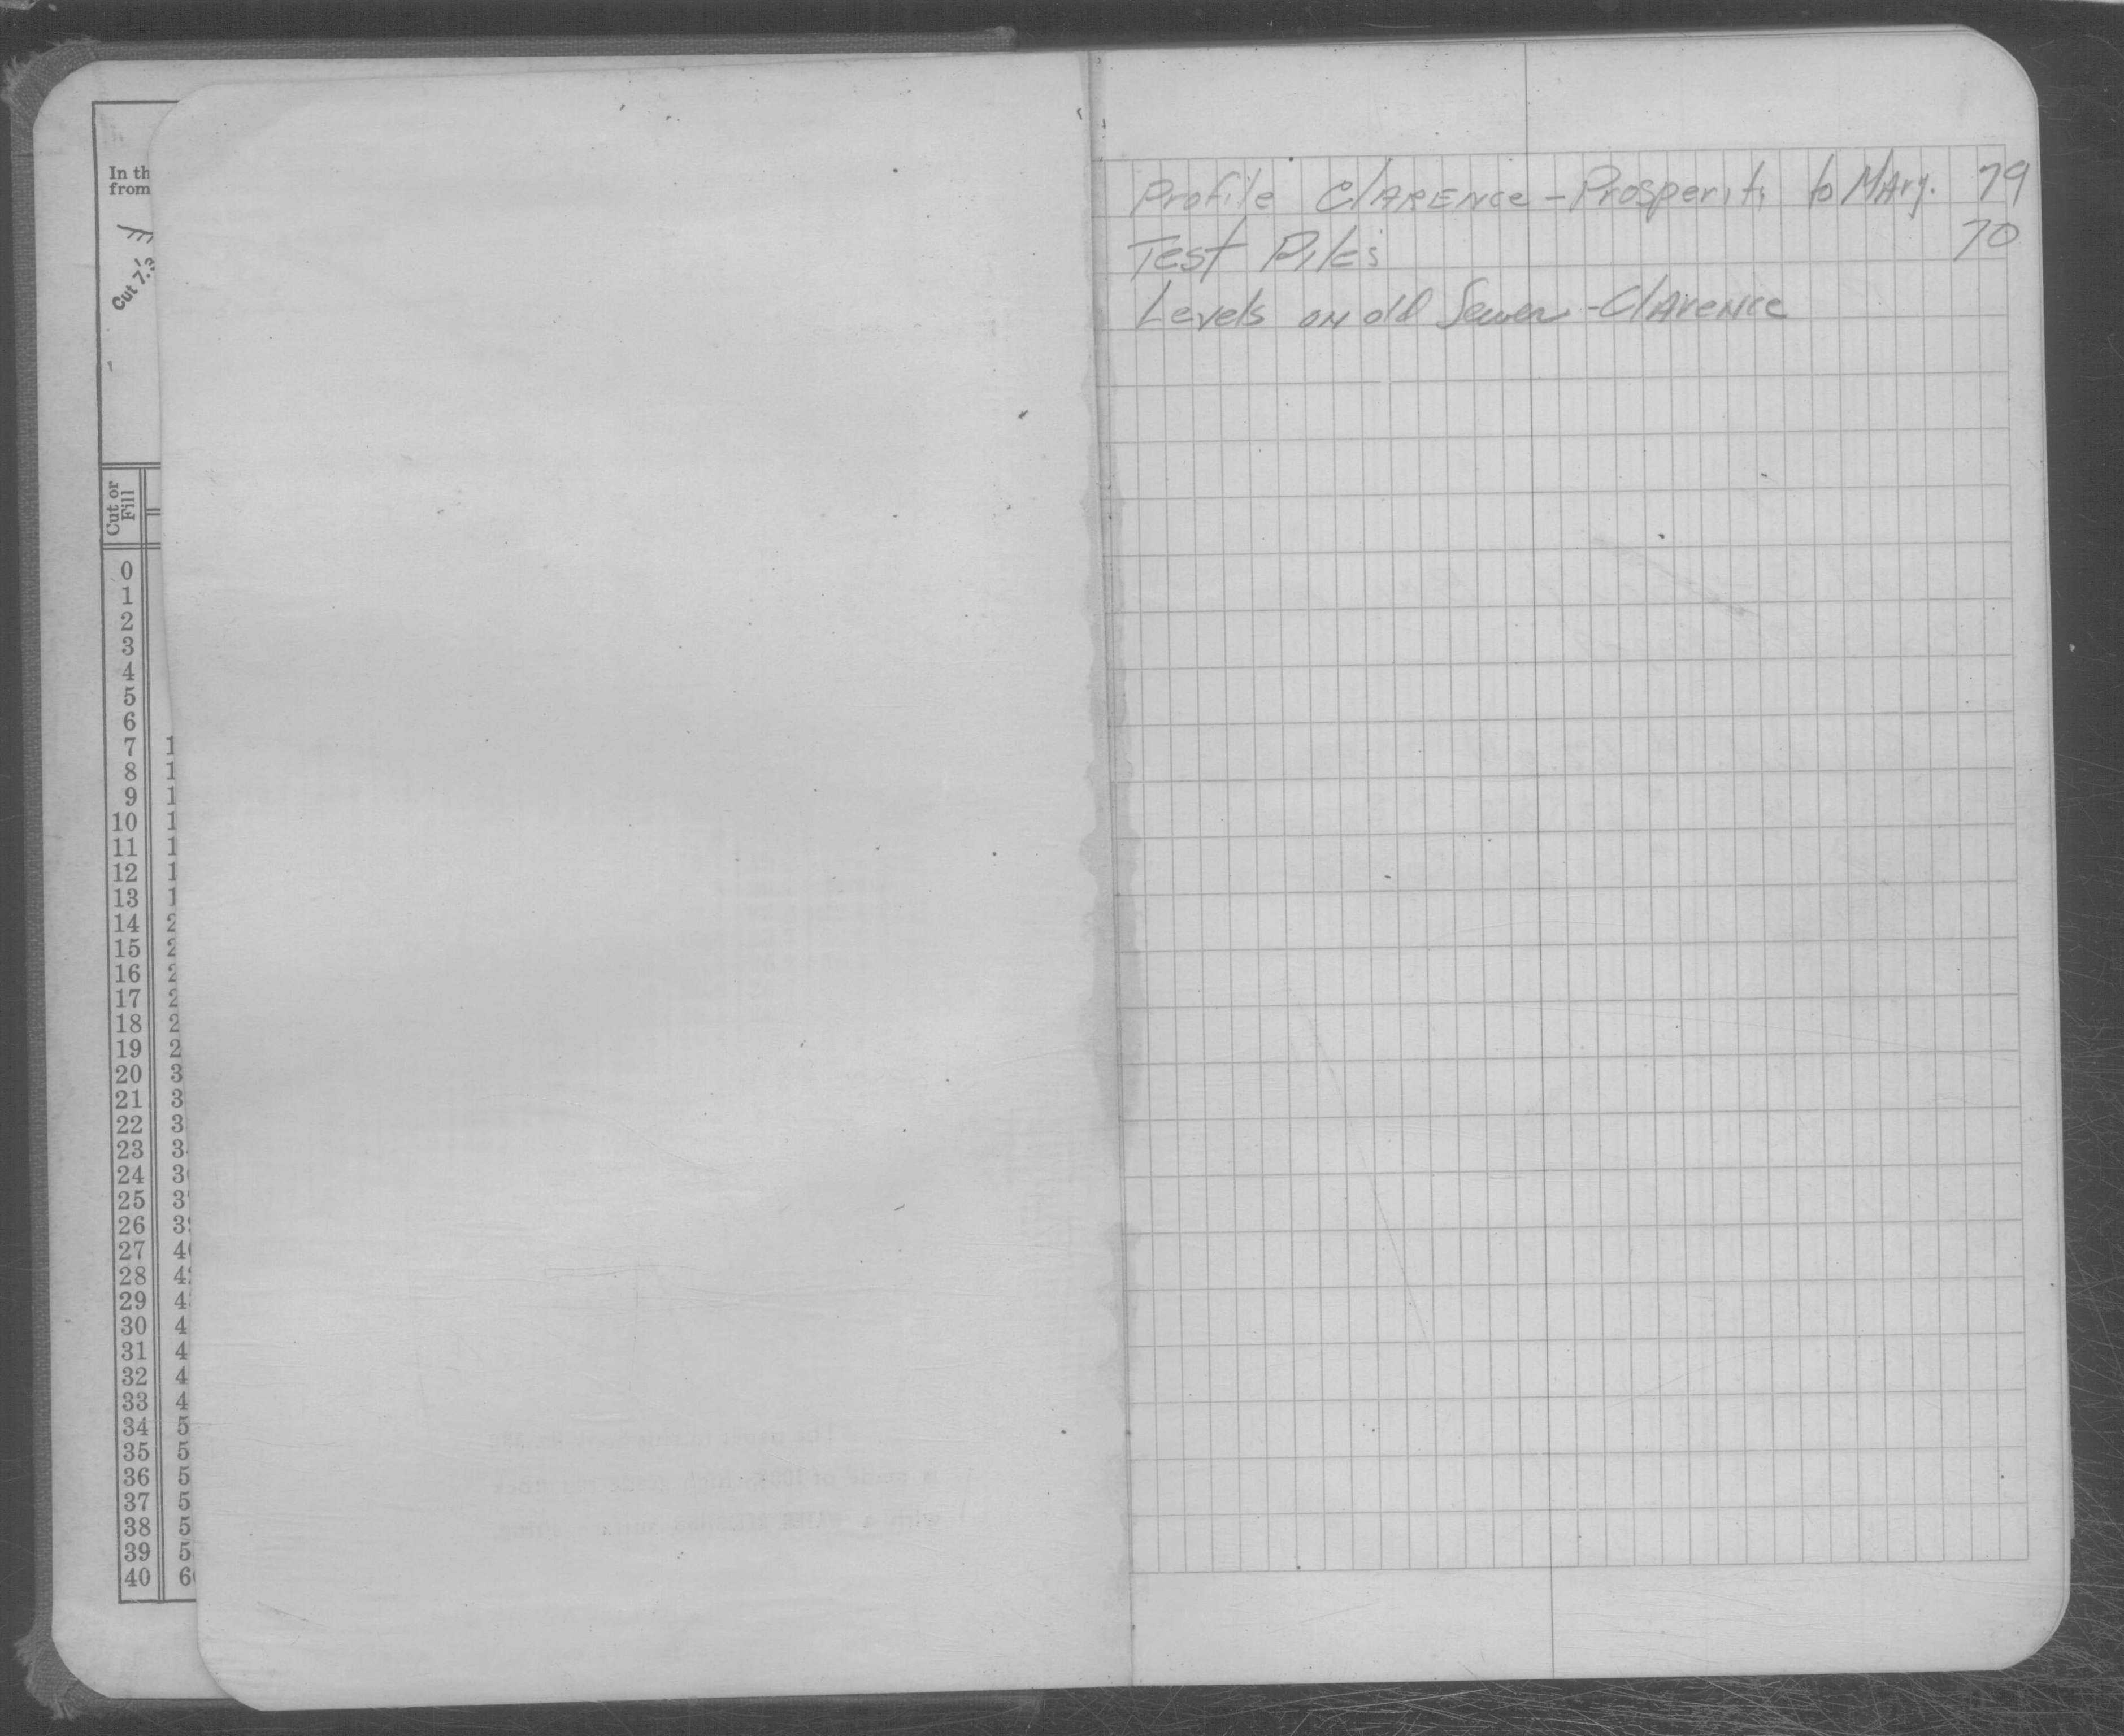 In th
from
Cut 7.3
Cut or
Fill
0
1
2
3
4
5
6
7 1
8 1
9 1
10 1
11 1
12 1
13 1
14 2
15 2
16 2
17 2
18 2
19 2
20 3
21 3
22 3
23 3
24 3
25 3
26 3
27 4
28 4
29 4
30 4
31 4
32 4
33 4
34 5
35 5
36 5
37 5
38 5
39 5
40 6
Profile CLARENCE - Prosperity to MAry. 79
Test Piles 70
Levels on old Sewer - CLArence